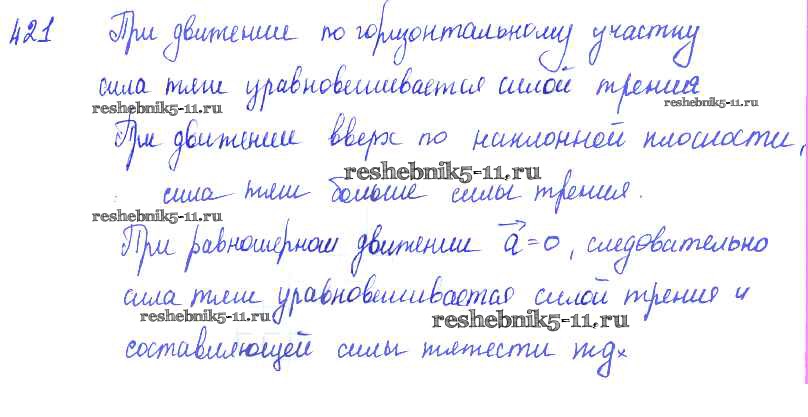 421 При движении по горизонтальному участку
сила тяги уравновешивается силой трения
reshebnik5-11.ru reshebnik5-11.ru
При движении вверх по наклонной плоскости,
reshebnik5-11.ru
сила тяги больше силы трения.
reshebnik5-11.ru
При равномерном движении a⃗=0, следовательно
сила тяги уравновешивается силой трения и
reshebnik5-11.ru reshebnik5-11.ru
составляющей силы тяжести mgₓ